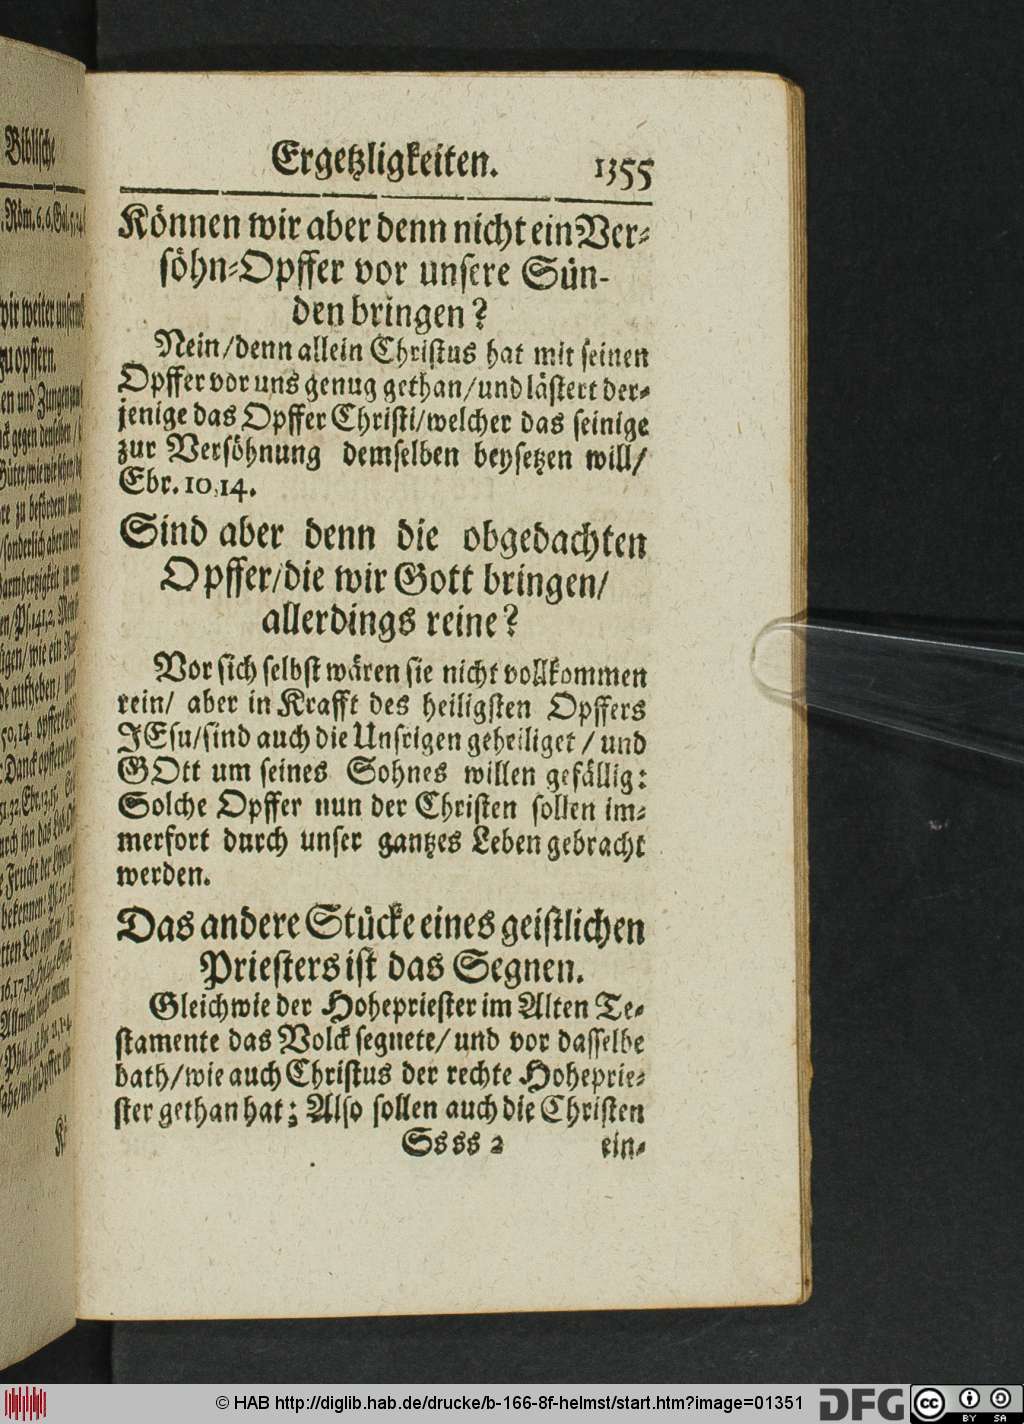 Biblische
Röm. 6. 6. Gal. 5, 24.
wir weiter
zu opffern.
Ergetzligkeiten. 1355
Können wir aber denn nicht ein Ver-
söhn-Opffer vor unsere Sün-
den bringen?
Nein/denn allein Christus hat mit seinen
Opffer vor uns genug gethan/und lästert der-
jenige das Opffer Christi/welcher das seinige
zur Versöhnung demselben beysetzen will/
Ebr. 10, 14.
Sind aber denn die obgedachten
Opffer/die wir Gott bringen/
allerdings reine?
Vor sich selbst wären sie nicht vollkommen
rein/ aber in Krafft des heiligsten Opffers
JEsu/sind auch die Unsrigen geheiliget / und
GOtt um seines Sohnes willen gefällig:
Solche Opffer nun der Christen sollen im-
merfort durch unser gantzes Leben gebracht
werden.
Das andere Stücke eines geistlichen
Priesters ist das Segnen.
Gleichwie der Hohepriester im Alten Te-
stamente das Volck segnete/ und vor dasselbe
bath/wie auch Christus der rechte Hoheprie-
ster gethan hat; Also sollen auch die Christen
Ssss 2 ein-
© HAB http://diglib.hab.de/drucke/b-166-8f-helmst/start.htm?image=01351
DFG cc BY SA